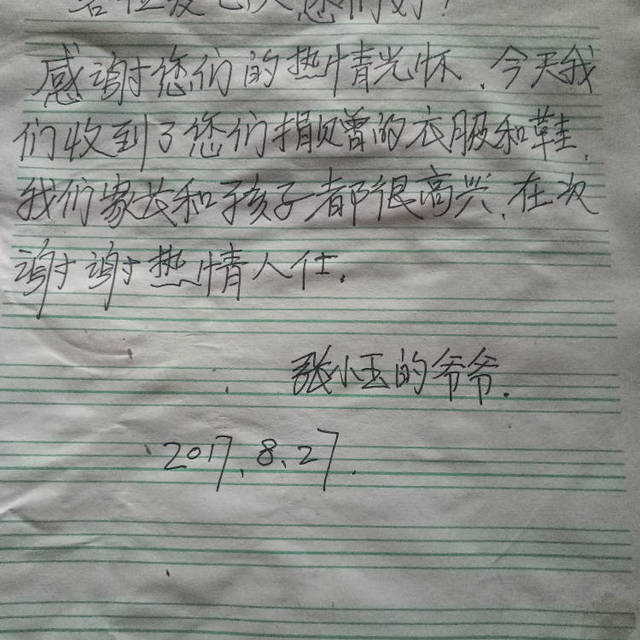 各位爱心人您们好!
感谢您们的热情光怀.今天我
们收到了您们捐赠的衣服和鞋.
我们家长和孩子都很高兴.在次
谢谢热情人仕.
张小玉的爷爷.
2017.8.27.